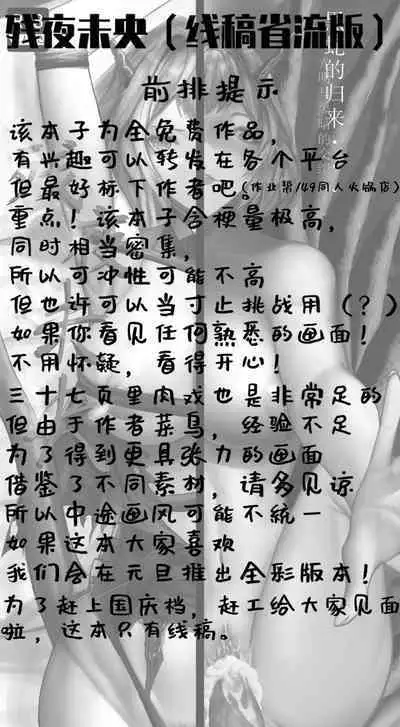 残夜未央（线稿省流版）
的归来·
前排提示
该本子为全免费作品，
有兴趣可以转发在各个平台
但最好标下作者吧。（作业帮/149同人火锅店）
重点！该本子含梗量极高，
同时相当密集，
所以可冲性可能不高
但也许可以当寸止挑战用（？）
如果你看见任何熟悉的画面！
不用怀疑，看得开心！
三十七页里肉戏也是非常足的
但由于作者菜鸟，经验不足
为了得到更具张力的画面
借鉴了不同素材，请多见谅
所以中途画风可能不统一
如果这本大家喜欢
我们会在元旦推出全彩版本！
为了赶上国庆档，赶工给大家见面
啦，这本只有线稿。